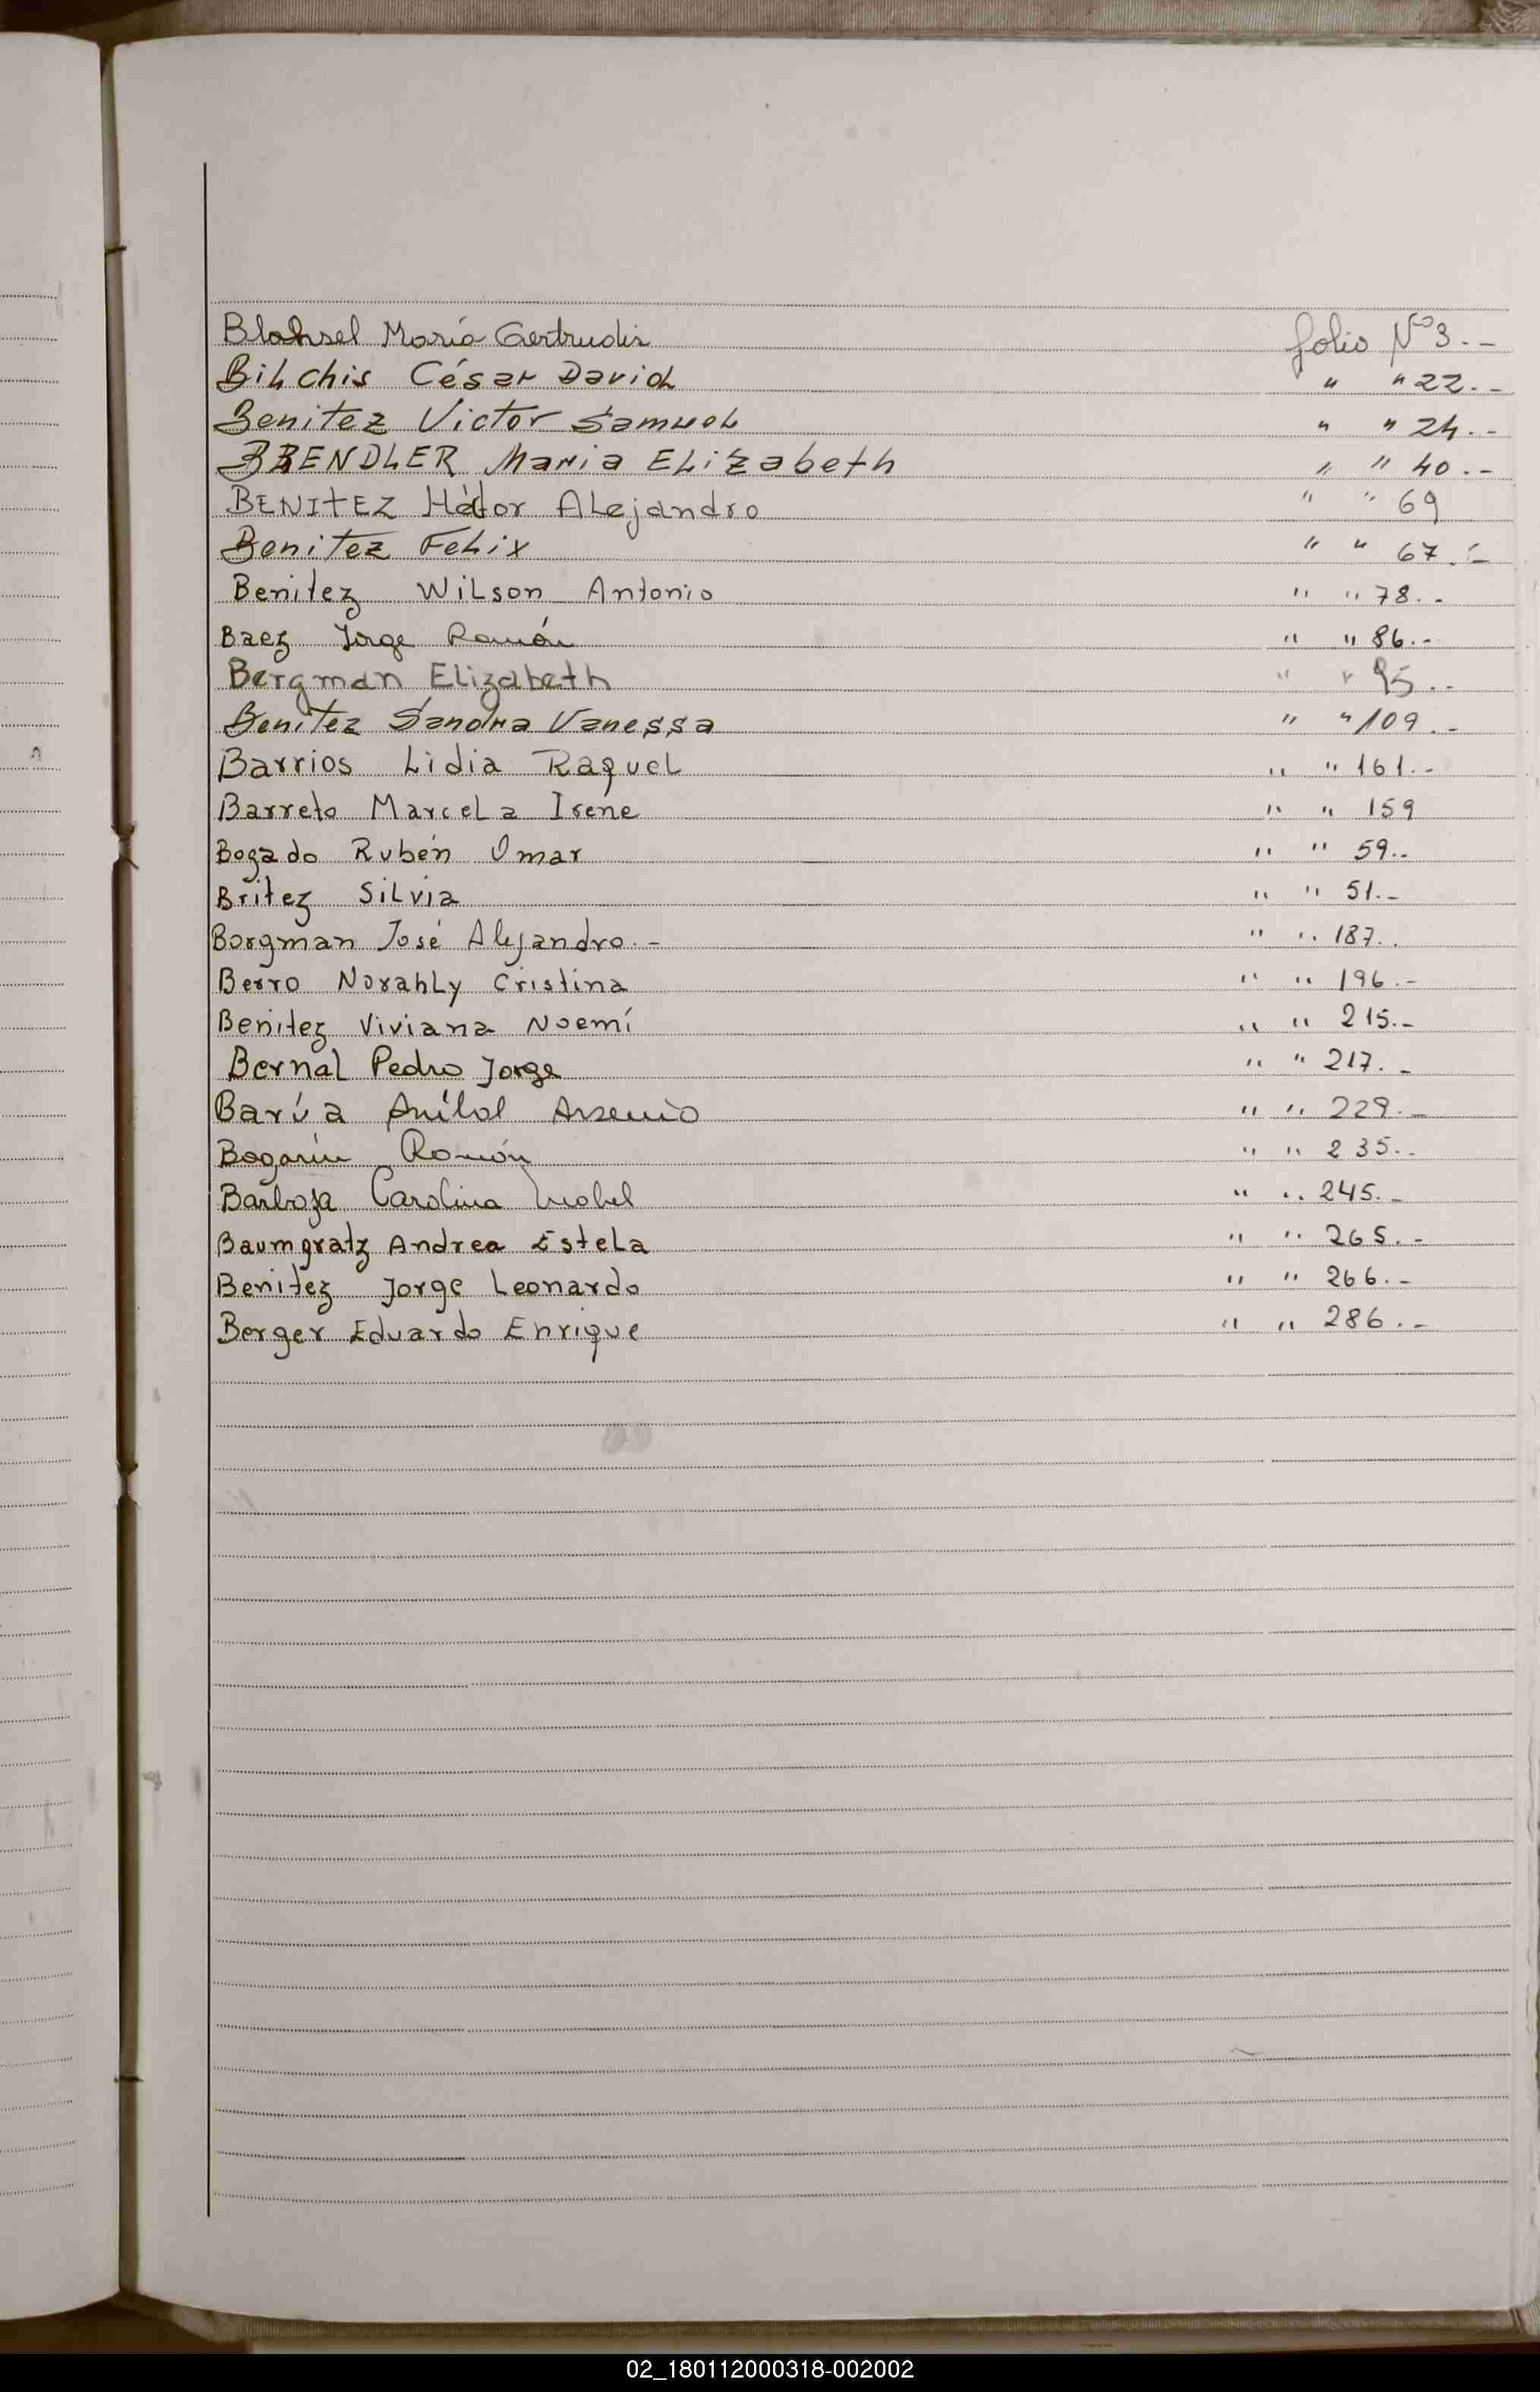 Blahsel María Gertrudis folio Nº 3.-
Bilchis César David " " 22.-
Benitez Victor Samuel " " 24.-
BRENDLER Maria Elizabeth " " 40.-
BENITEZ Héctor Alejandro " " 69
Benitez Felix " " 67.-
Benitez Wilson Antonio " " 78.-
Baez Jorge Ramón " " 86.-
Bergman Elizabeth " " 95.-
Benitez Sandra Vanessa " " 109.-
Barrios Lidia Raquel " " 161.-
Barreto Marcela Irene " " 159
Bogado Rubén Omar " " 59.-
Britez Silvia " " 51.-
Borgman José Alejandro.- " " 187.-
Berro Norahly Cristina " " 196.-
Benitez Viviana Noemí " " 215.-
Bernal Pedro Jorge " " 217.-
Barúa Aníbal Arsenio " " 229.-
Bogarín Ramón " " 235.-
Barboza Carolina Mabel " " 245.-
Baumgratz Andrea Estela " " 265.-
Benitez Jorge Leonardo " " 266.-
Berger Eduardo Enrique " " 286.-
02_180112000318-002002